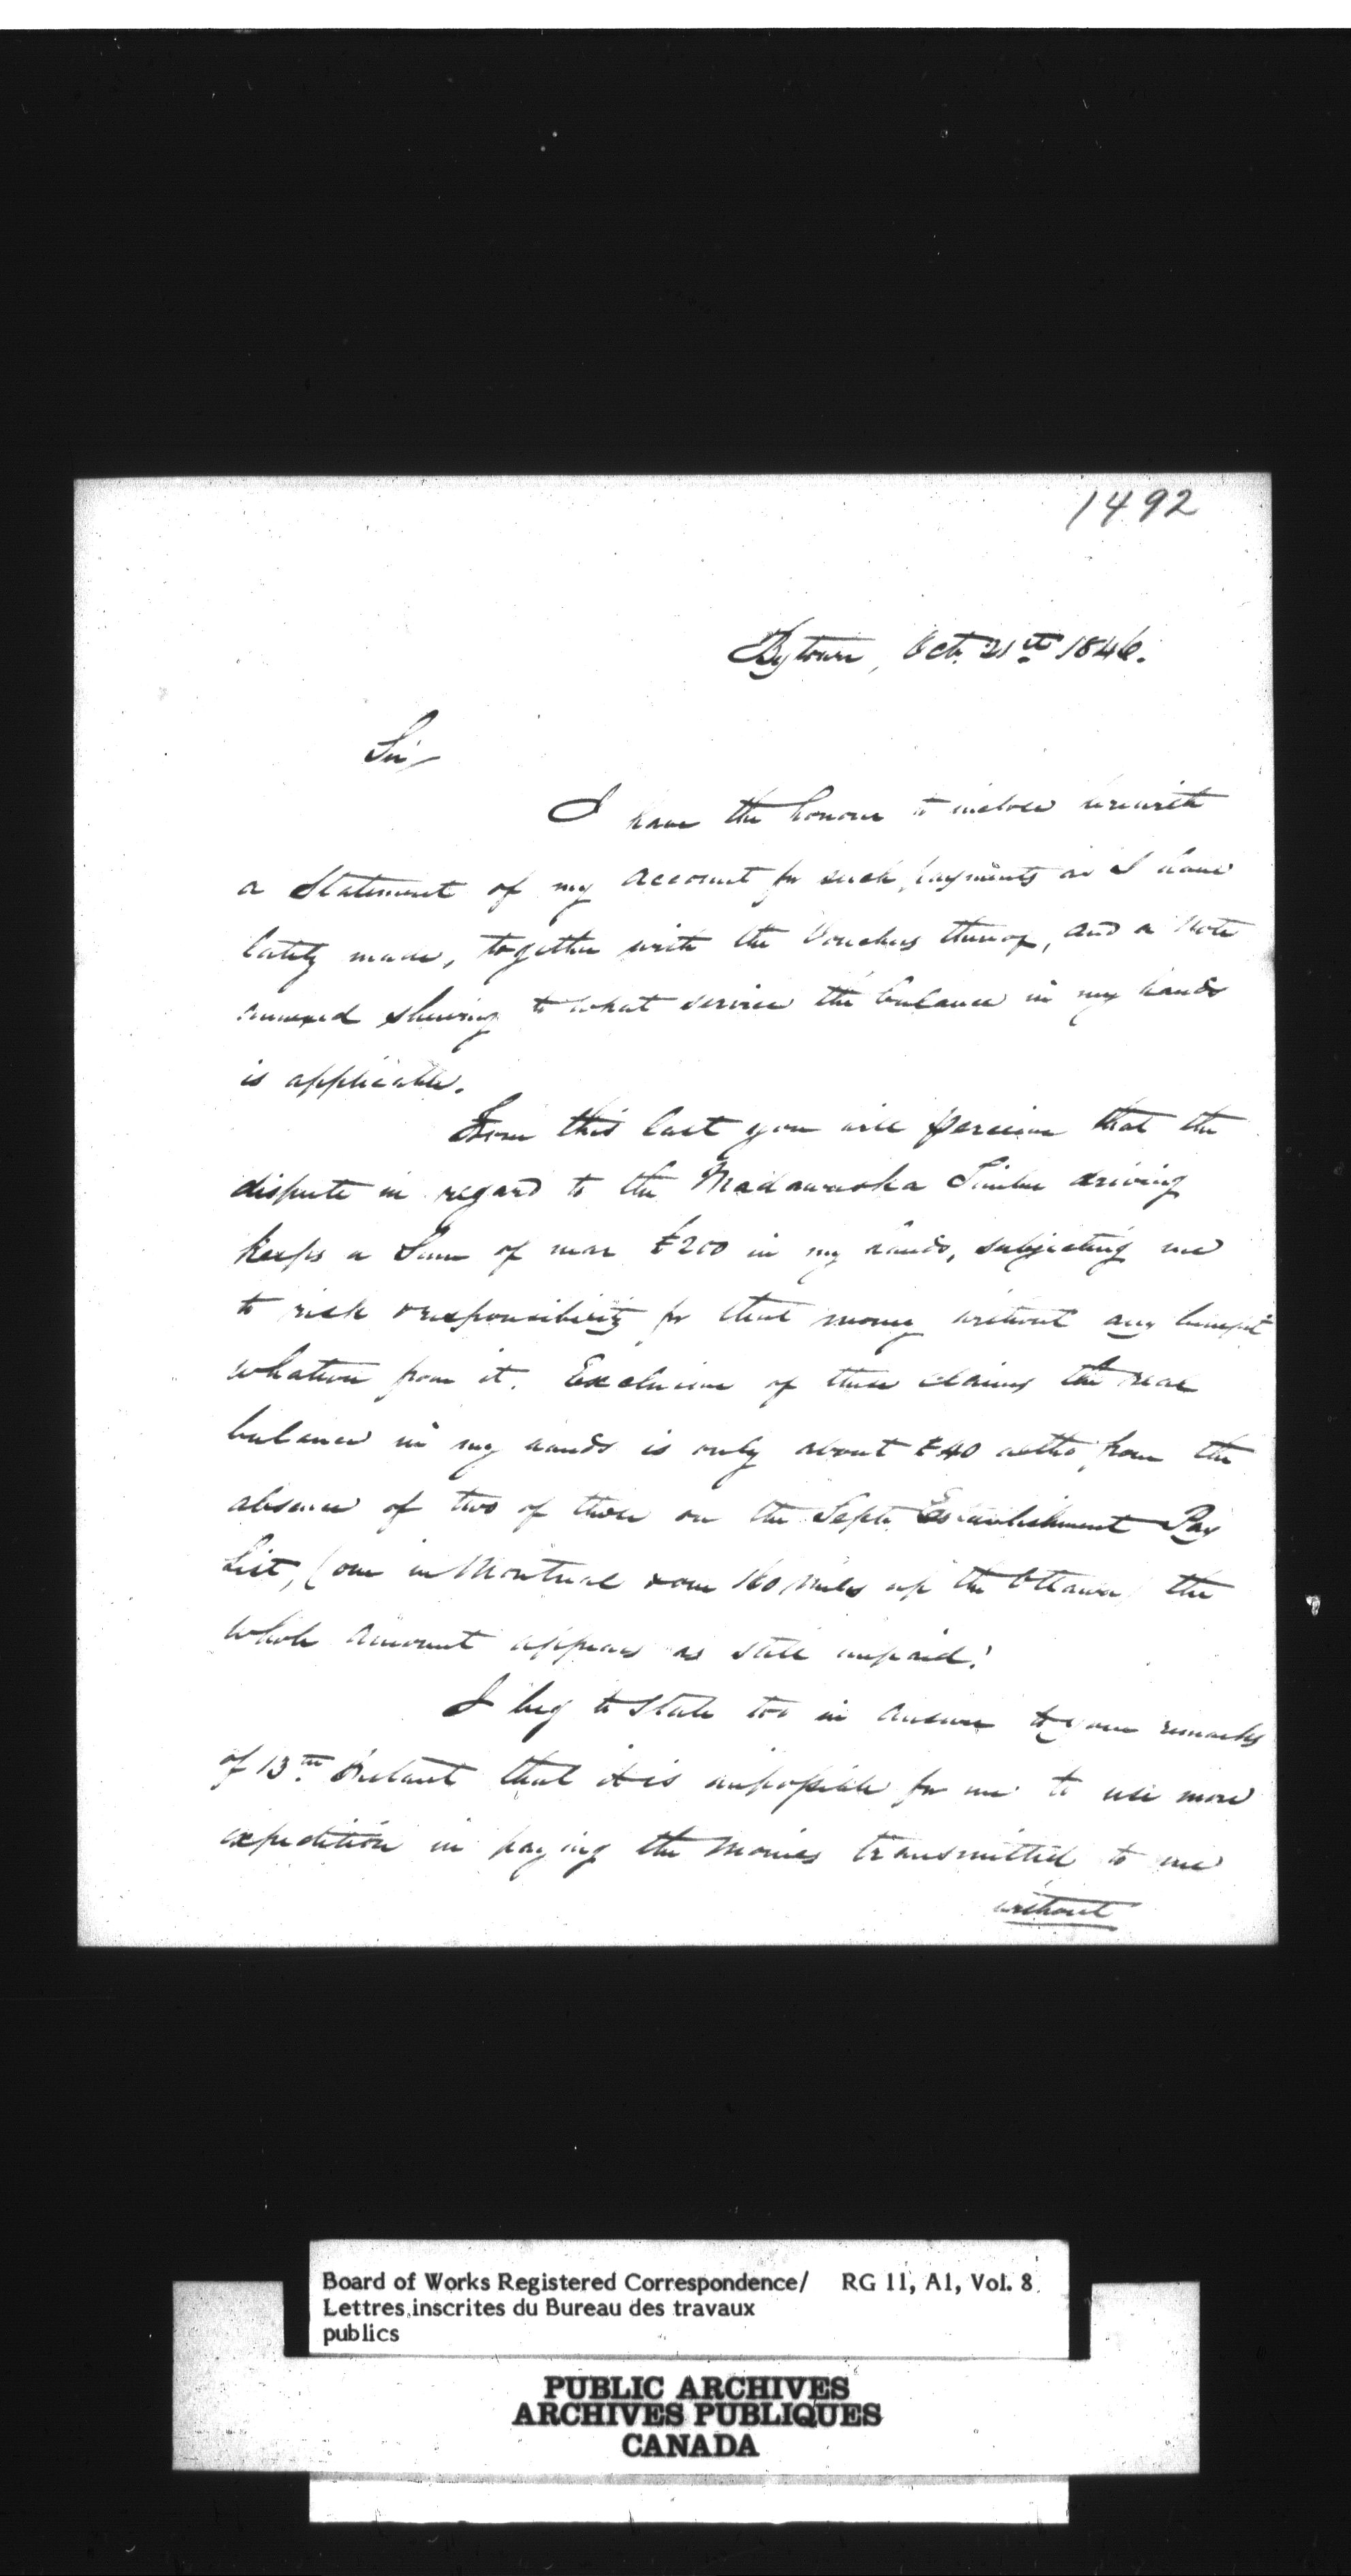 1492
Bytown, Oct. 21th 1846.
Sir/
I have the honour to inclose herewith
a Statement of my account for such payments as I have
lately made, together with the Vouchers thereof, and a Note
annexed shewing to what service the balance in my hands
is applicable.
From this last you will perceive that the
dispute in regard to the Madawaska Timber driving
keeps a Sum of near £200 in my hands, subjecting me
to risk & responsibility for that money without any benefit
whatever from it. Exclusive of these claims the real
balance in my hands is only about £40 altho from the
absence of two of those on the Septr Establishment Pay
List, (one in Montreal & one 160 miles up the Ottawa) the
whole amount appears as still unpaid.
I beg to state too in answer to your remarks
of 13th Instant that it is impossible for me to use more
expedition in paying the monies transmitted to me
without
Board of Works Registered Correspondence/ RG 11, A1, Vol. 8
Lettres inscrites du Bureau des travaux
publics
PUBLIC ARCHIVES
ARCHIVES PUBLIQUES
CANADA